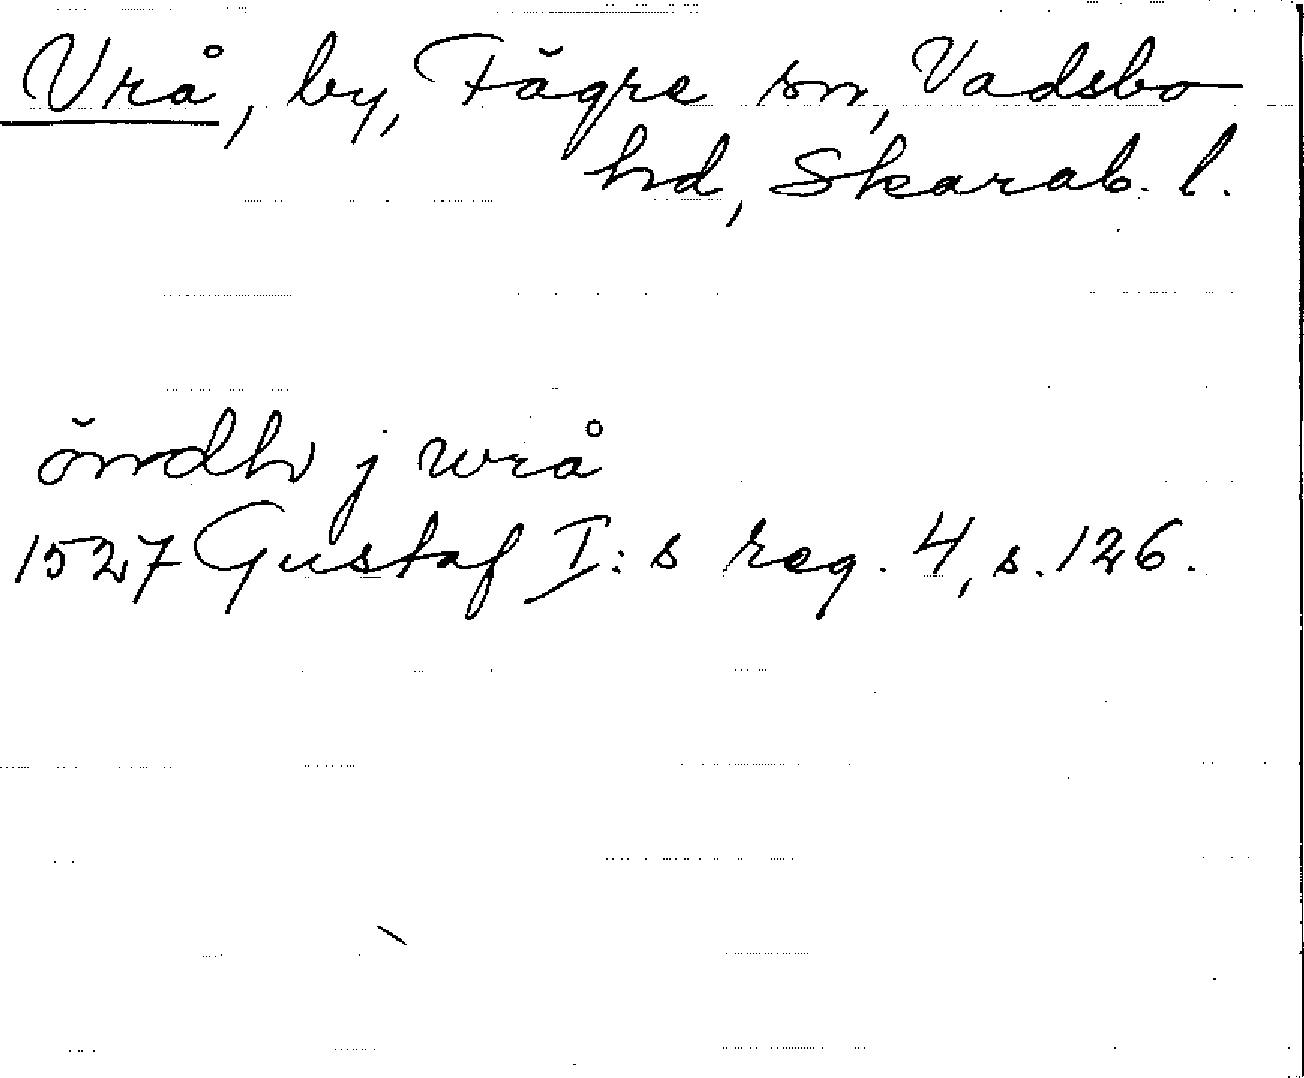 Vrå, by, Fägre sn, Vadsbo
hd, Skarab. l.
öndh j wrå
1527 Gustaf I:s reg. 4, s. 126.